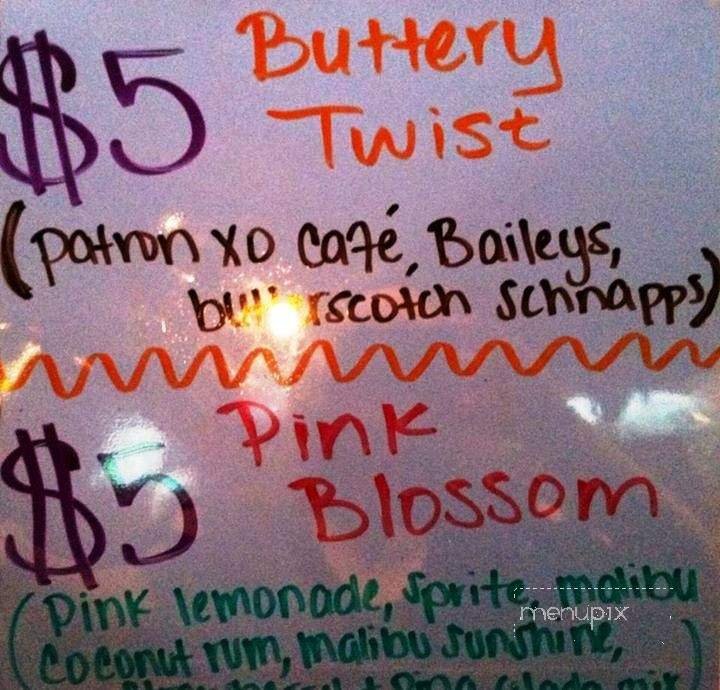 $5 Buttery
Twist
(patron XO Café, Baileys,
butterscotch schnapps)
$5 Pink
Blossom
(pink lemonade, sprite, malibu
coconut rum, malibu sunshine,
+ Pina Colada mix)
menupix